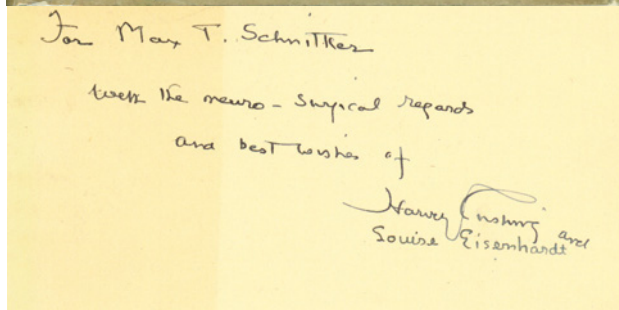 For Max T. Schnitker
with the neuro-surgical regards
and best wishes of
Harvey Cushing and
Louise Eisenhardt